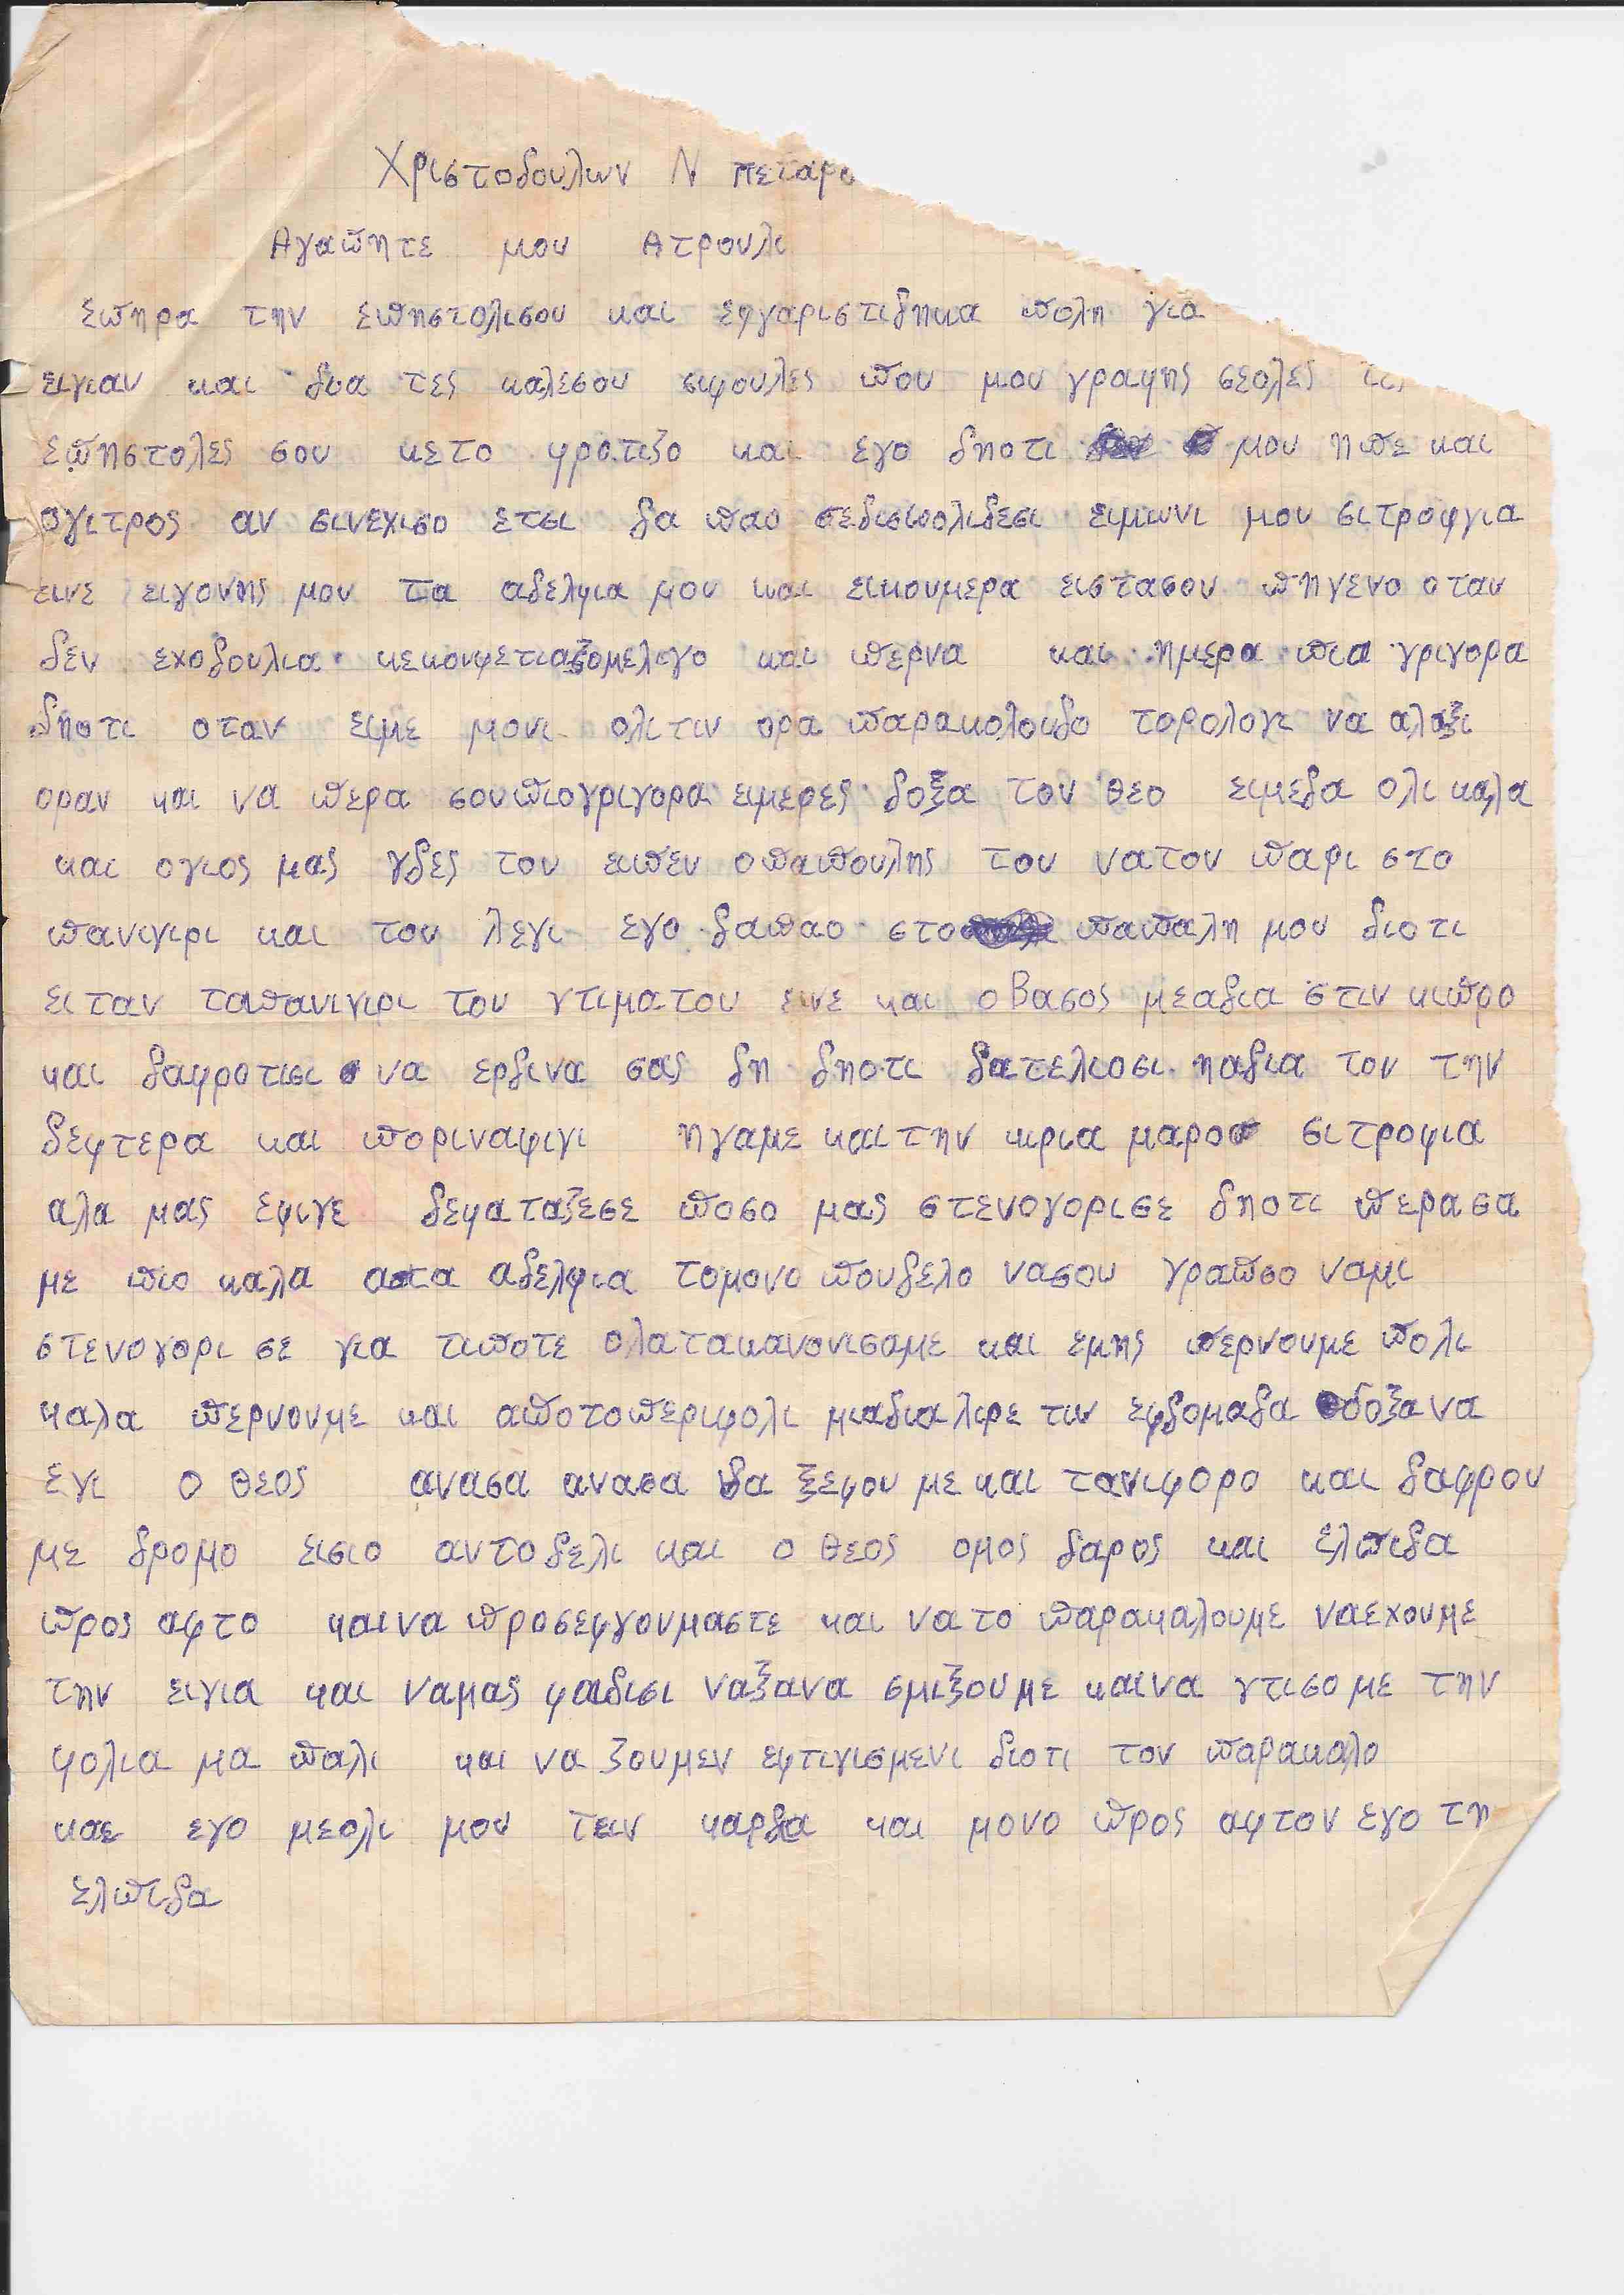 Χριστοδουλων Ν πεταρο
Αγαπητε μου Ατρουλι
Επηρα την επηστολισου και εφγαριστιδηκα πολη για
ειγιαν και δυα τες καλεσου σιφουλες που μου γραφης σεολες τις
επηστολες σου κε το φροτιζο και εγο δηοτι μου ηπε και
ογιτρος αν σινεχισο ετσι δα παο ειμωνι μου σιτροφγια
εινε ειγονης μου τα αδελφια μου και εικουμερα ειστασου πηγενο οταν
δεν εχοδουλια κεκουφετιαζομελιγο και περνα και ημερα πια γριγορα
δηοτι οταν ειμε μονι ολιτιν ορα παρακολουδο τορολογι να αλαξι
οραν και να περα σουπιογριγορα ειμερες δοξα τον θεο ειμεδα ολι καλα
και ογιος μας γδες τον ειπεν οπαπουλης του νατον παρι στο
πανιγιρι και του λεγι εγο δαπαο στο παπαλη μου διοτι
ειταν ταπανιγιρι του γτιματου εινε και ο Βασος μεαδια στιν κιπρο
και δαφροτισι να ερδινα σας δη δηοτι δατελιοσι ηαδια του την
δεφτερα και ποριναφιγι ηγαμε και την κρια μαρο σιτροφια
αλα μας εφιγε δεφαταζεσε ποσο μας στενογορισε δηοτι περασα
με πιο καλα απτα αδελφια τομονο πουδελο νασου γραπσο ναμι
στενογορι σε για τιποτε ολατακανονισαμε και εμης περνουμε πολι
καλα περνουμε και αποτοπεριφολι μιαδιαλιρε τιν εφδομαδα δοξανα
εγι ο θεος ανασα ανασα δα ξεφου με και τανιφορο και δαφρου
με δρομο εισιο αντοδελι και ο θεος ομος δαρος και ελπιδα
προς αφτο καινα προσεφγουμαστε και να το παρακαλουμε ναεχουμε
την ειγια και ναμας φαδισι ναξανα σμιξουμε καινα γτισομε την
φολια μα παλι και να ζουμεν εφτιγισμενι διοτι τον παρακαλο
και εγο μεολι μου τειν καρδα και μονο προς αφτον εγο τη
ελπιδα